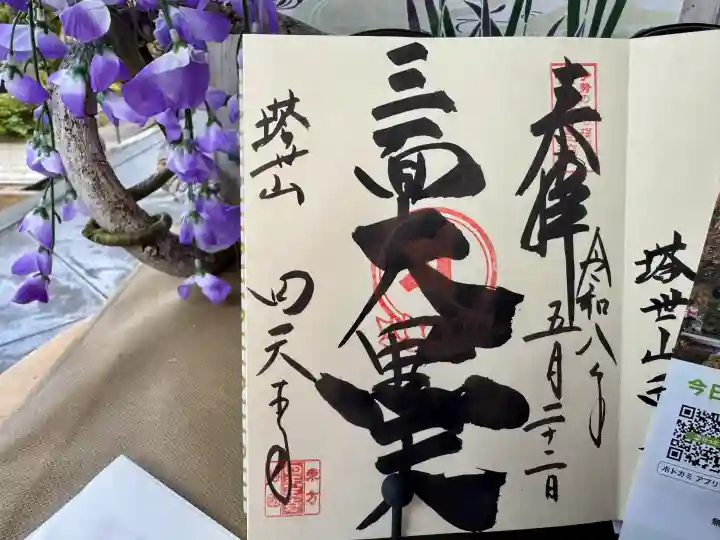 奉拝
令和八年
五月二十二日
三面大黒天
塔世山
四天王寺
塔世山
今日
ホトカミ アプリ